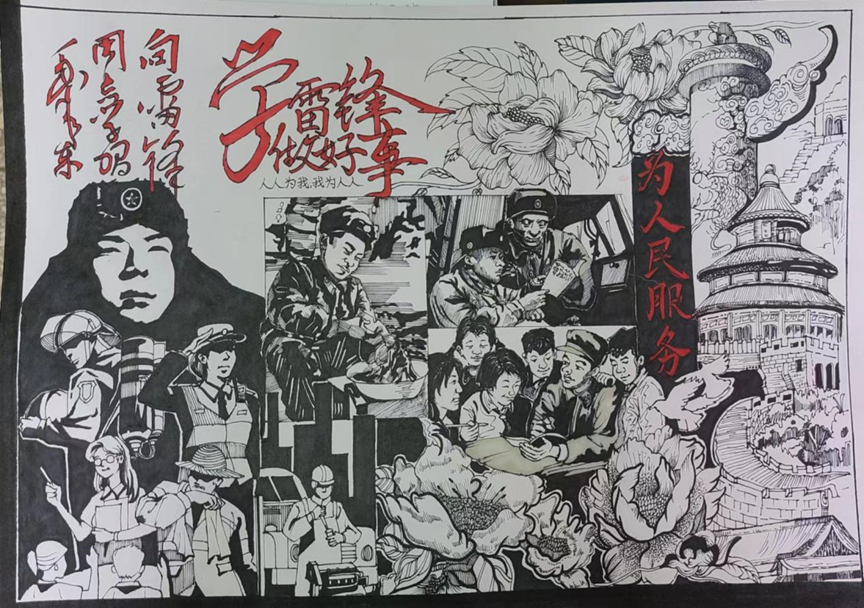 向雷锋
同志学习
毛泽东
学雷锋
做好事
人人为我,我为人人
为人民服务